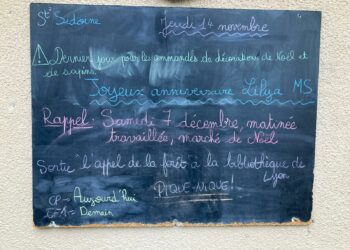 St Sidoine
Jeudi 14 novembre
Dernier jour pour les commandes de décorations de Noël et
de sapins.
Joyeux anniversaire Lilya MS
Rappel: Samedi 7 décembre, matinée
travaillée, marché de Noël
Sortie "l'appel de la forêt à la bibliothèque de
Lyon
PIQUE-NIQUE!
CP → Aujourd'hui
CE1 → Demain